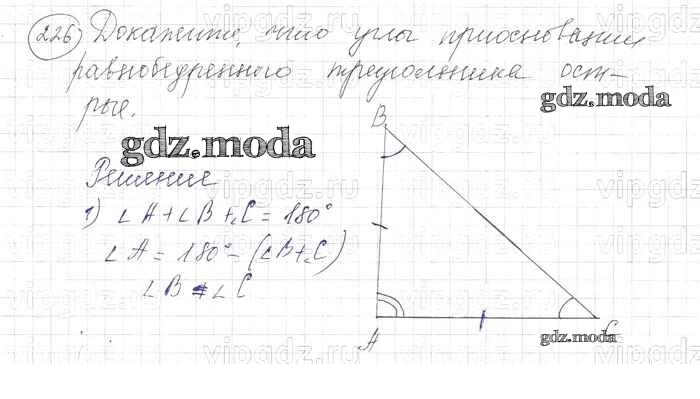 226 Докажите, что углы приосновании
равнобедренного треугольника ост-
рые.
gdz.moda
gdz.moda
Решение
1) ∠A+∠B+∠C=180°
∠A=180°-(∠B+∠C)
∠B=∠C
B
A
C
gdz.moda
vipgdz.ru